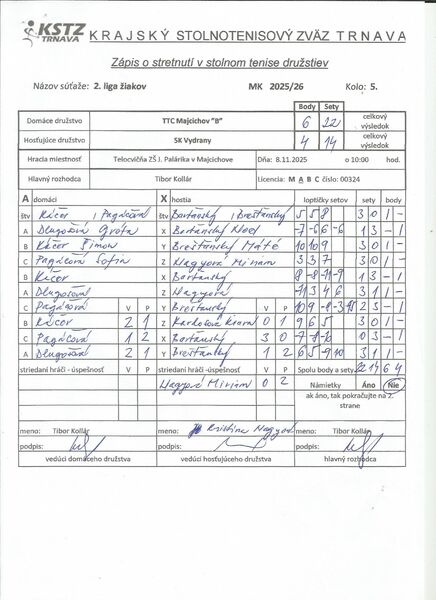 KSTZ TRNAVA KRAJSKÝ STOLNOTENISOVÝ ZVÄZ TRNAVA
Zápis o stretnutí v stolnom tenise družstiev
Názov súťaže: 2. liga žiakov MK 2025/26 Kolo: 5.
Body Sety
Domáce družstvo TTC Majcichov "B" 6 22 celkový výsledok
Hosťujúce družstvo SK Vydrany 4 14 celkový výsledok
Hracia miestnosť Telocvičňa ZŠ J. Palárika v Majcichove Dňa: 8.11.2025 o 10:00 hod.
Hlavný rozhodca Tibor Kollár Licencia: M A B C číslo: 00324
A domáci X hostia loptičky setov sety body
štv Káčer, Pagáčová štv Bartánský, Brestánský 5 5 8 3 0 1 -
A Dlugošová X Bartánský -7 -6 6 -6 1 3 - 1
B Káčer Šimon Y Brestánský Máté 10 10 9 3 0 1 -
C Pagáčová Sofia Z Nagyová Miriam 3 3 7 3 0 1 -
B Káčer X Bartánský 8 -8 -11 -9 1 3 - 1
A Dlugošová Z Nagyová -11 3 4 6 3 1 1 -
C Pagáčová V P Y Brestánský V P 2 3 - 1
B Káčer 2 1 Z 0 1 9 6 5 3 0 1 -
C Pagáčová 1 2 X Bartánský 3 0 0 3 - 1
A Dlugošová 2 1 Y Brestánský 1 2 6 5 -9 10 3 1 1 -
striedaní hráči - úspešnosť V P striedaní hráči - úspešnosť V P Spolu body a sety 22 14 6 4
Nagyová Miriam 0 2 Námietky Áno Nie
ak áno, tak pokračujte na 2. strane
meno: Tibor Kollár meno: Kristína Nagyová meno: Tibor Kollár
podpis: podpis: podpis:
vedúci domáceho družstva vedúci hosťujúceho družstva hlavný rozhodca